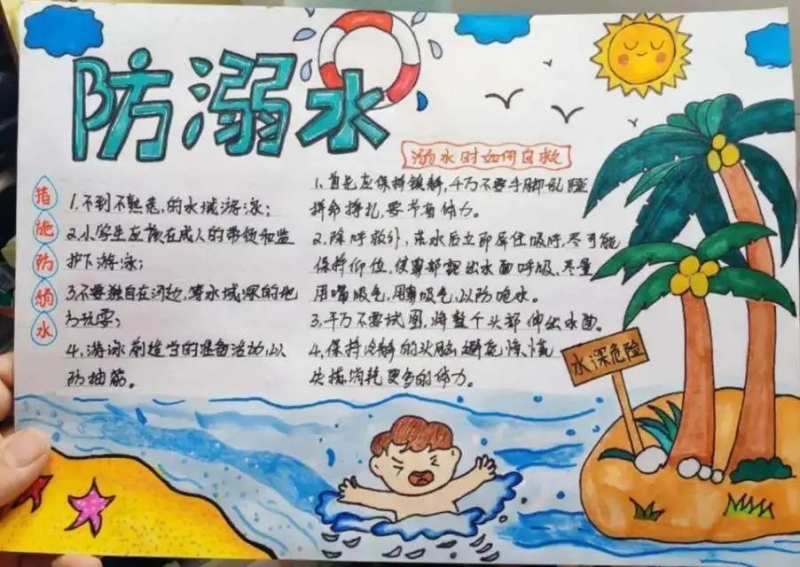 防溺水
措施防溺水
1.不到不熟悉的水域游泳；
2.小学生应该在成人的带领和监
护下游泳；
3.不要独自在河边、等水域深的地
方玩耍；
4.游泳前适当的准备活动，以
防抽筋。
溺水时如何自救
1.首先应保持镇静，千万不要手脚乱蹬
拼命挣扎，要节省体力。
2.除呼救外，落水后立即屏住呼吸，尽可能
保持仰位，使鼻部露出水面呼吸，尽量
用嘴吸气，用鼻吸气，以防呛水。
3.千万不要试图，将整个头部伸出水面。
4.保持冷静的头脑，避免惊慌
失措，消耗更多的体力。
水深危险